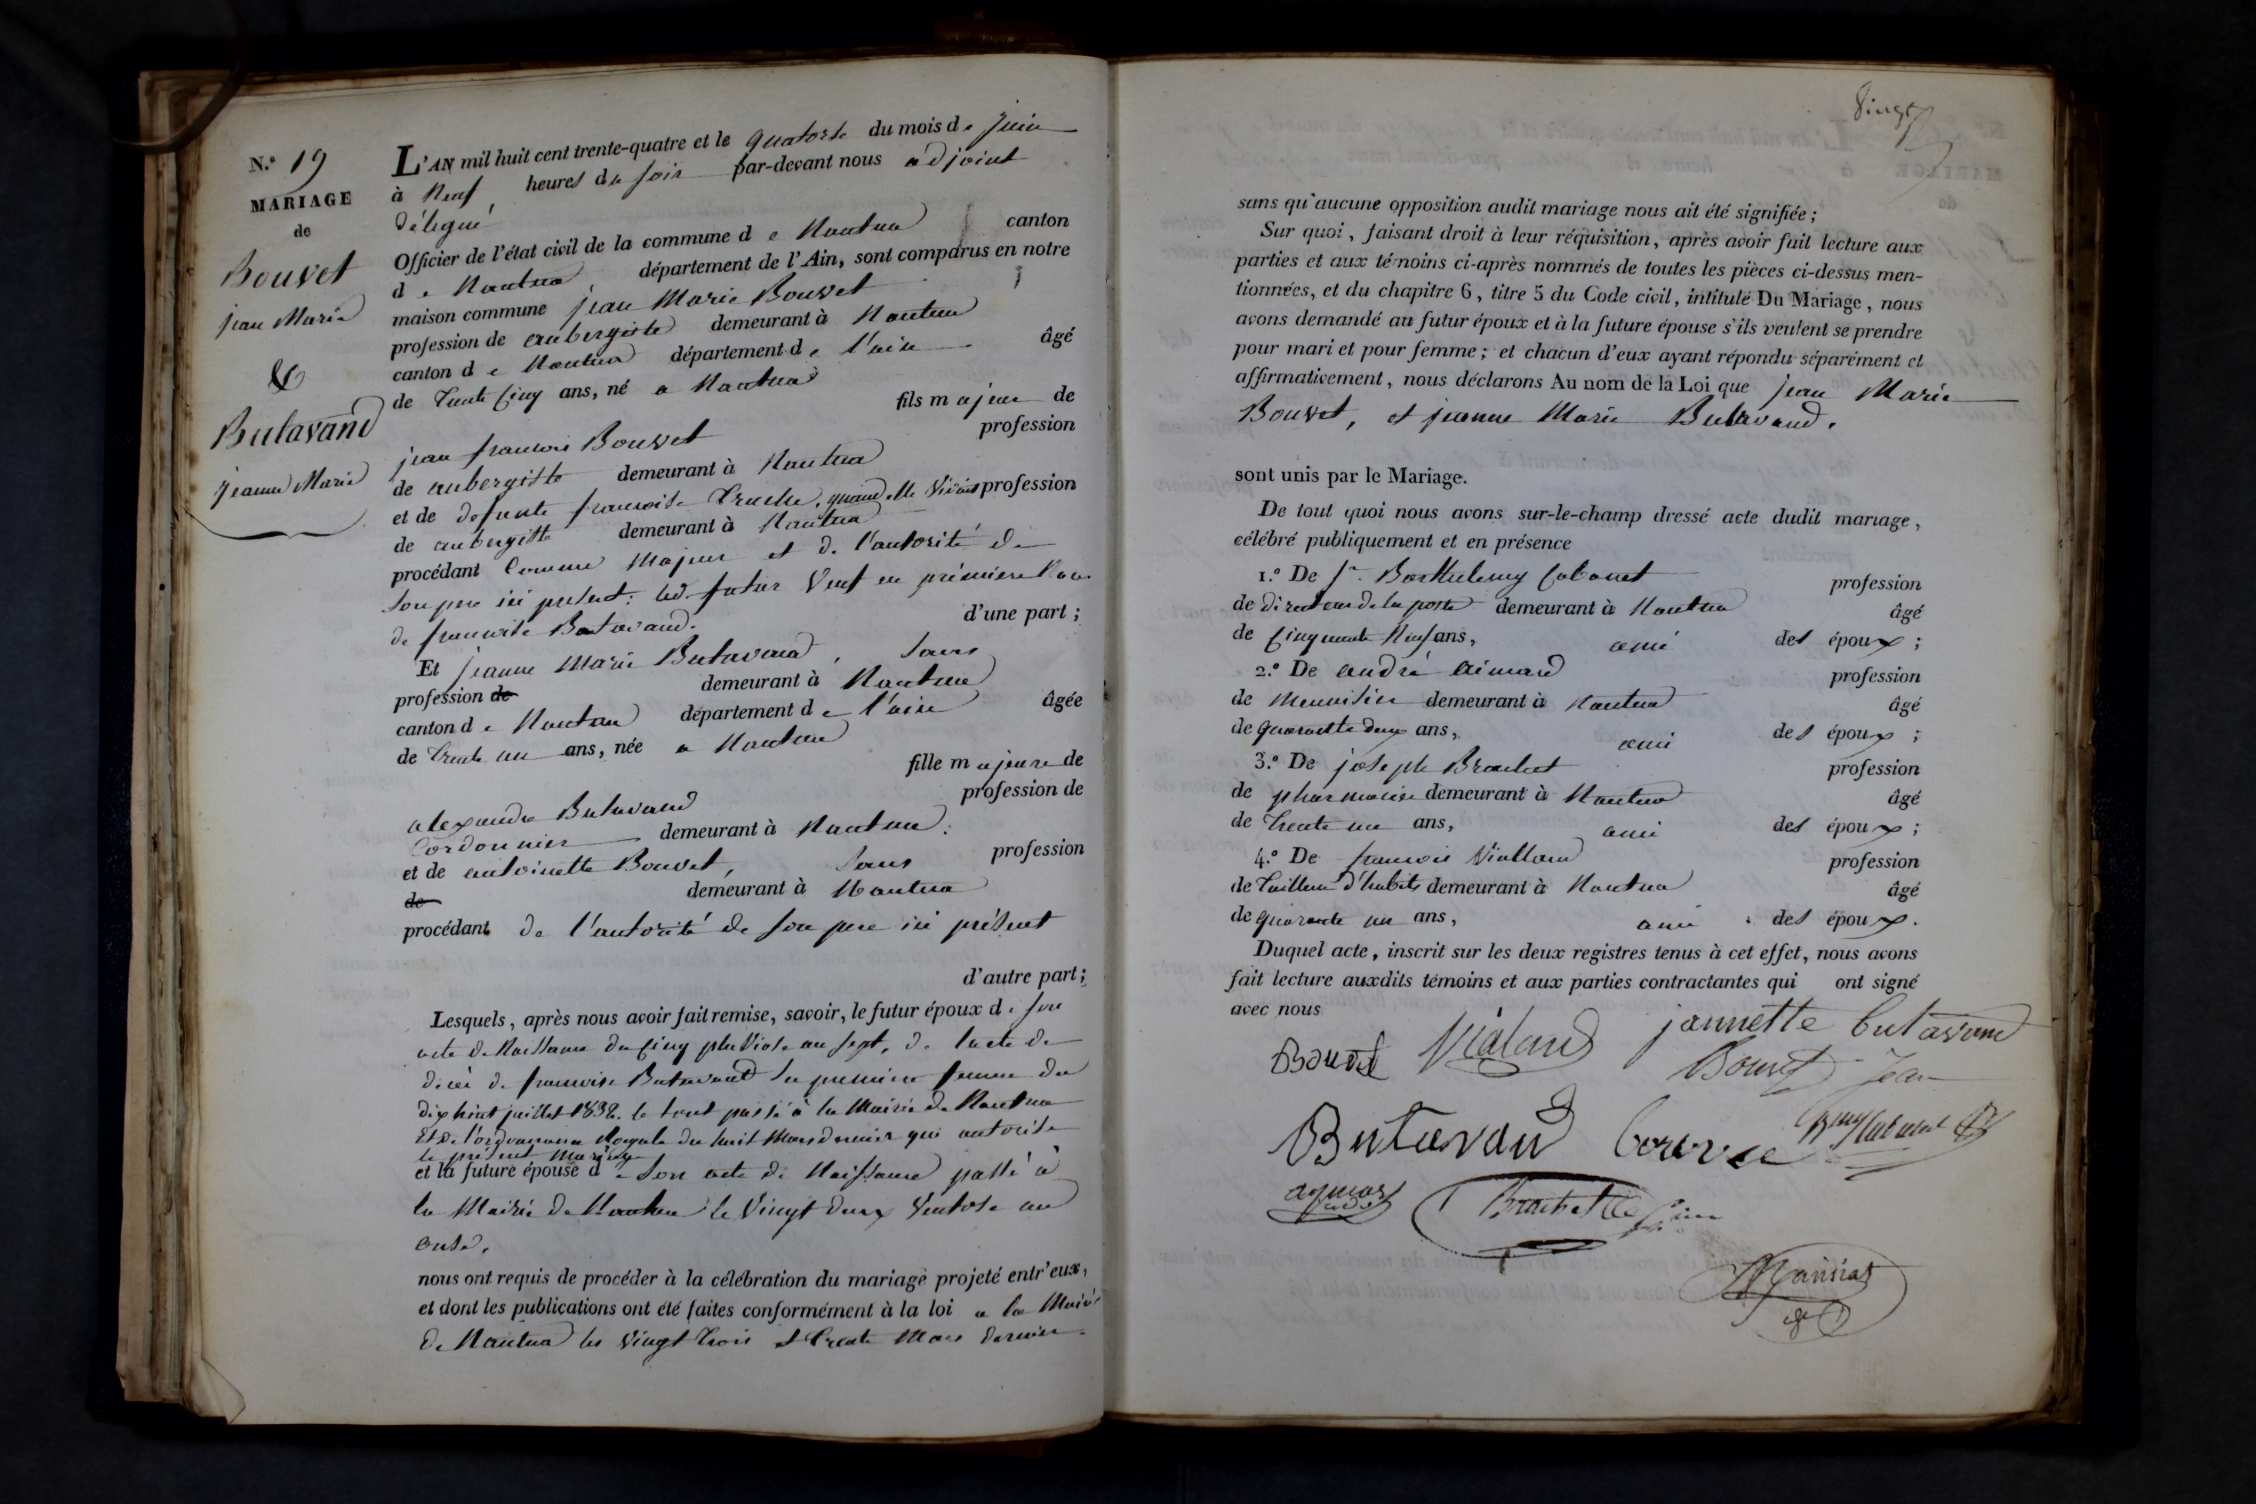 N.º 19
MARIAGE
de
Bouvet
jean Marie
&
Butavand
jeanne Marie
L'AN mil huit cent trente-quatre et le quatorze du mois de juin
à Neuf heures du soir par-devant nous adjoint
délégué
Officier de l'état civil de la commune de Nantua canton
de Nantua département de l'Ain, sont comparus en notre
maison commune jean Marie Bouvet
profession de aubergiste demeurant à Nantua
canton de Nantua département de l'ain âgé
de Trente Cinq ans, né a Nantua
fils majeur de
jean francois Bouvet profession
de aubergiste demeurant à Nantua
et de defunte francoise quand elle vivait profession
de aubergiste demeurant à Nantua
procédant Comme Majeur et de l'autorité de
son pere ici présent: led. futur Veuf en première
de francoise Butavand. d'une part;
Et jeanne Marie Butavand, sans
profession de demeurant à Nantua
canton de Nantua département de l'ain âgée
de trente un ans, née a Nantua
fille majeure de
alexandre Butavand profession de
Cordonnier demeurant à Nantua:
et de antoinette Bouvet, sans profession
de demeurant à Nantua
procédant de l'autorité de son pere ici présent
d'autre part;
Lesquels, après nous avoir fait remise, savoir, le futur époux de son
acte de Naissance du Cinq pluviose an sept, de l'acte de
décès de francoise Butavand sa premiere femme du
dix huit juillet 1832. le tout passé à la Mairie de Nantua
Et de l'ordonnance Royale du huit Mars dernier qui autorise
le présent mariage
et la future épouse de son acte de Naissance passé à
la Mairie de Nantua le Vingt deux Ventose an
onze.
nous ont requis de procéder à la célébration du mariage projeté entr'eux,
et dont les publications ont été faites conformément à la loi a la Mairie
de Nantua les vingt trois et trente Mars dernier
Vingt
sans qu'aucune opposition audit mariage nous ait été signifiée;
Sur quoi, faisant droit à leur réquisition, après avoir fait lecture aux
parties et aux témoins ci-après nommés de toutes les pièces ci-dessus men-
tionnées, et du chapitre 6, titre 5 du Code civil, intitulé Du Mariage, nous
avons demandé au futur époux et à la future épouse s'ils veulent se prendre
pour mari et pour femme; et chacun d'eux ayant répondu séparément et
affirmativement, nous déclarons Au nom de la Loi que jean Marie
Bouvet, et jeanne Marie Butavand.
sont unis par le Mariage.
De tout quoi nous avons sur-le-champ dressé acte dudit mariage,
célébré publiquement et en présence
1.º De Sr. Barthelemy Cabanet profession
de directeur de la poste demeurant à Nantua âgé
de Cinquante Neuf ans, ami des époux;
2.º De andré aimard profession
de Menuisier demeurant à Nantua âgé
de quarante deux ans, ami des époux;
3.º De joseph Brachet profession
de pharmacien demeurant à Nantua âgé
de trente un ans, ami des époux;
4.º De francois Vialland profession
de Tailleur d'habits demeurant à Nantua âgé
de quarante un ans, ami des époux.
Duquel acte, inscrit sur les deux registres tenus à cet effet, nous avons
fait lecture auxdits témoins et aux parties contractantes qui ont signé
avec nous
Bouvet Vialand jannette butavand
Bouvet Jean
Butavand
Brachet